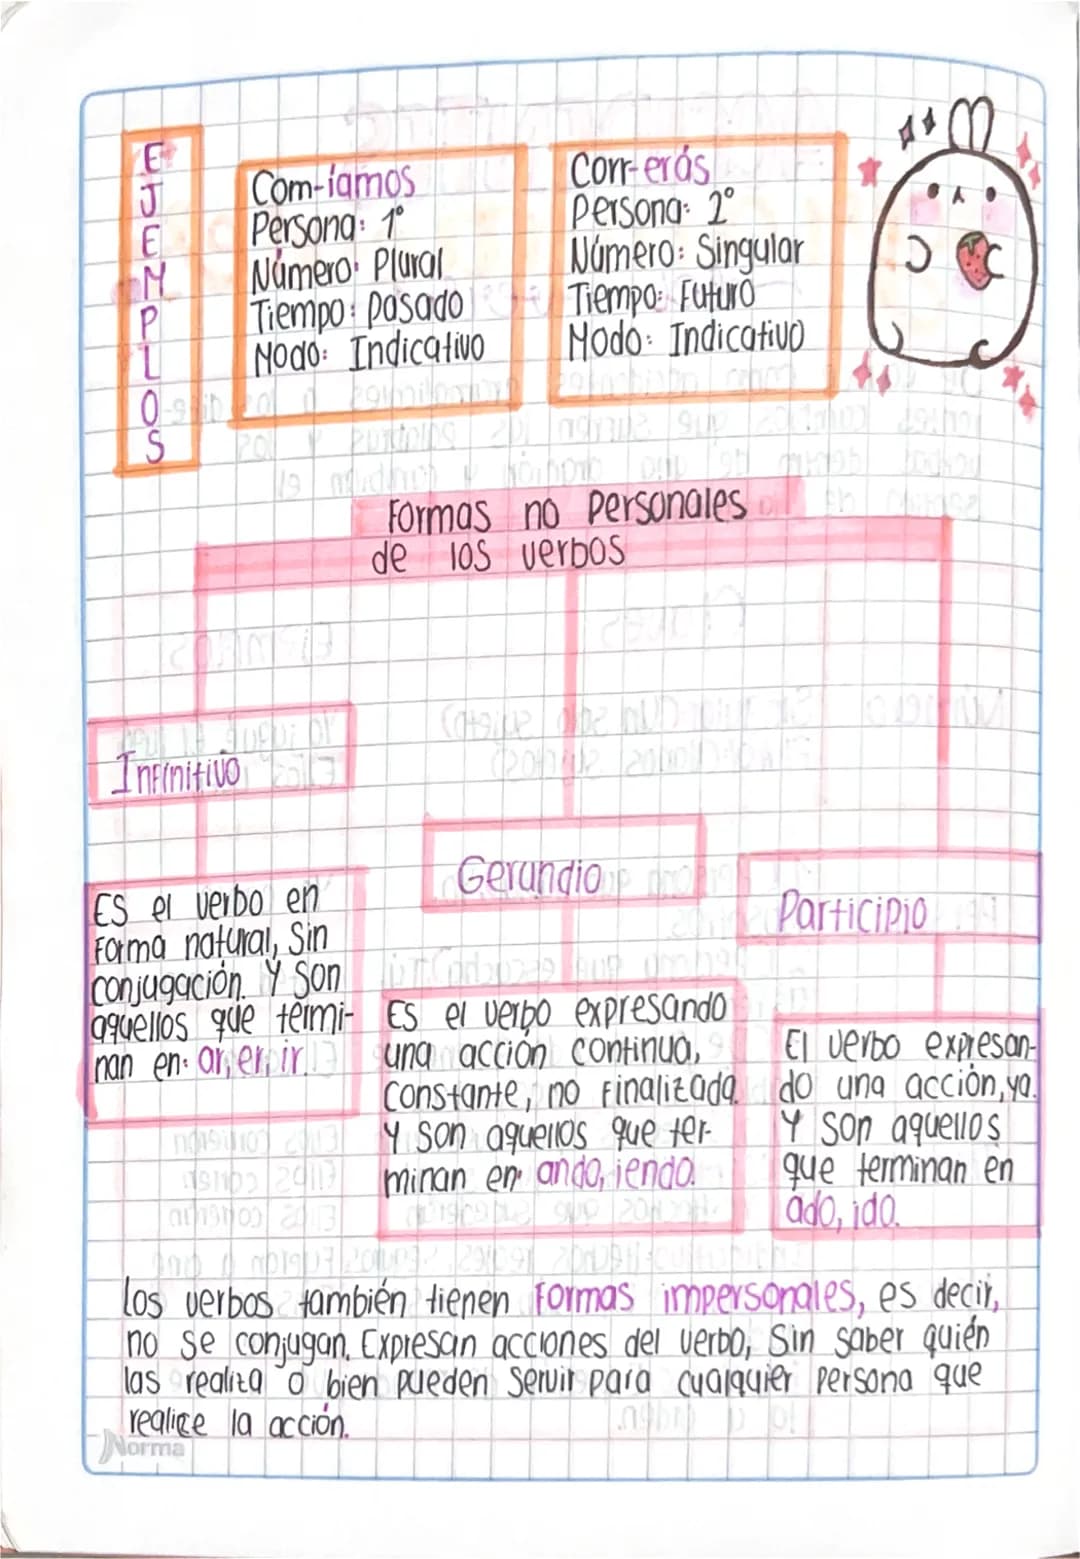 EJEMPLOS
Com-íamos
Persona: 1°
Número: Plural
Tiempo: Pasado
Modo: Indicativo
Corr-erás
Persona: 2°
Número: Singular
Tiempo: Futuro
Modo: Indicativo
Formas no personales
de los verbos
Infinitivo
Es el verbo en
forma natural, sin
conjugación. Y son
aquellos que termi-
nan en: ar, er, ir.
Gerundio
Es el verbo expresando
una acción continua,
constante, no finalizada.
Y son aquellos que ter-
minan en: ando, iendo.
Participio
El verbo expresan-
do una acción, ya.
Y son aquellos
que terminan en
ado, ido.
Los verbos también tienen formas impersonales, es decir,
no se conjugan. Expresan acciones del verbo, sin saber quién
las realiza o bien pueden servir para cualquier persona que
realice la acción.
Norma